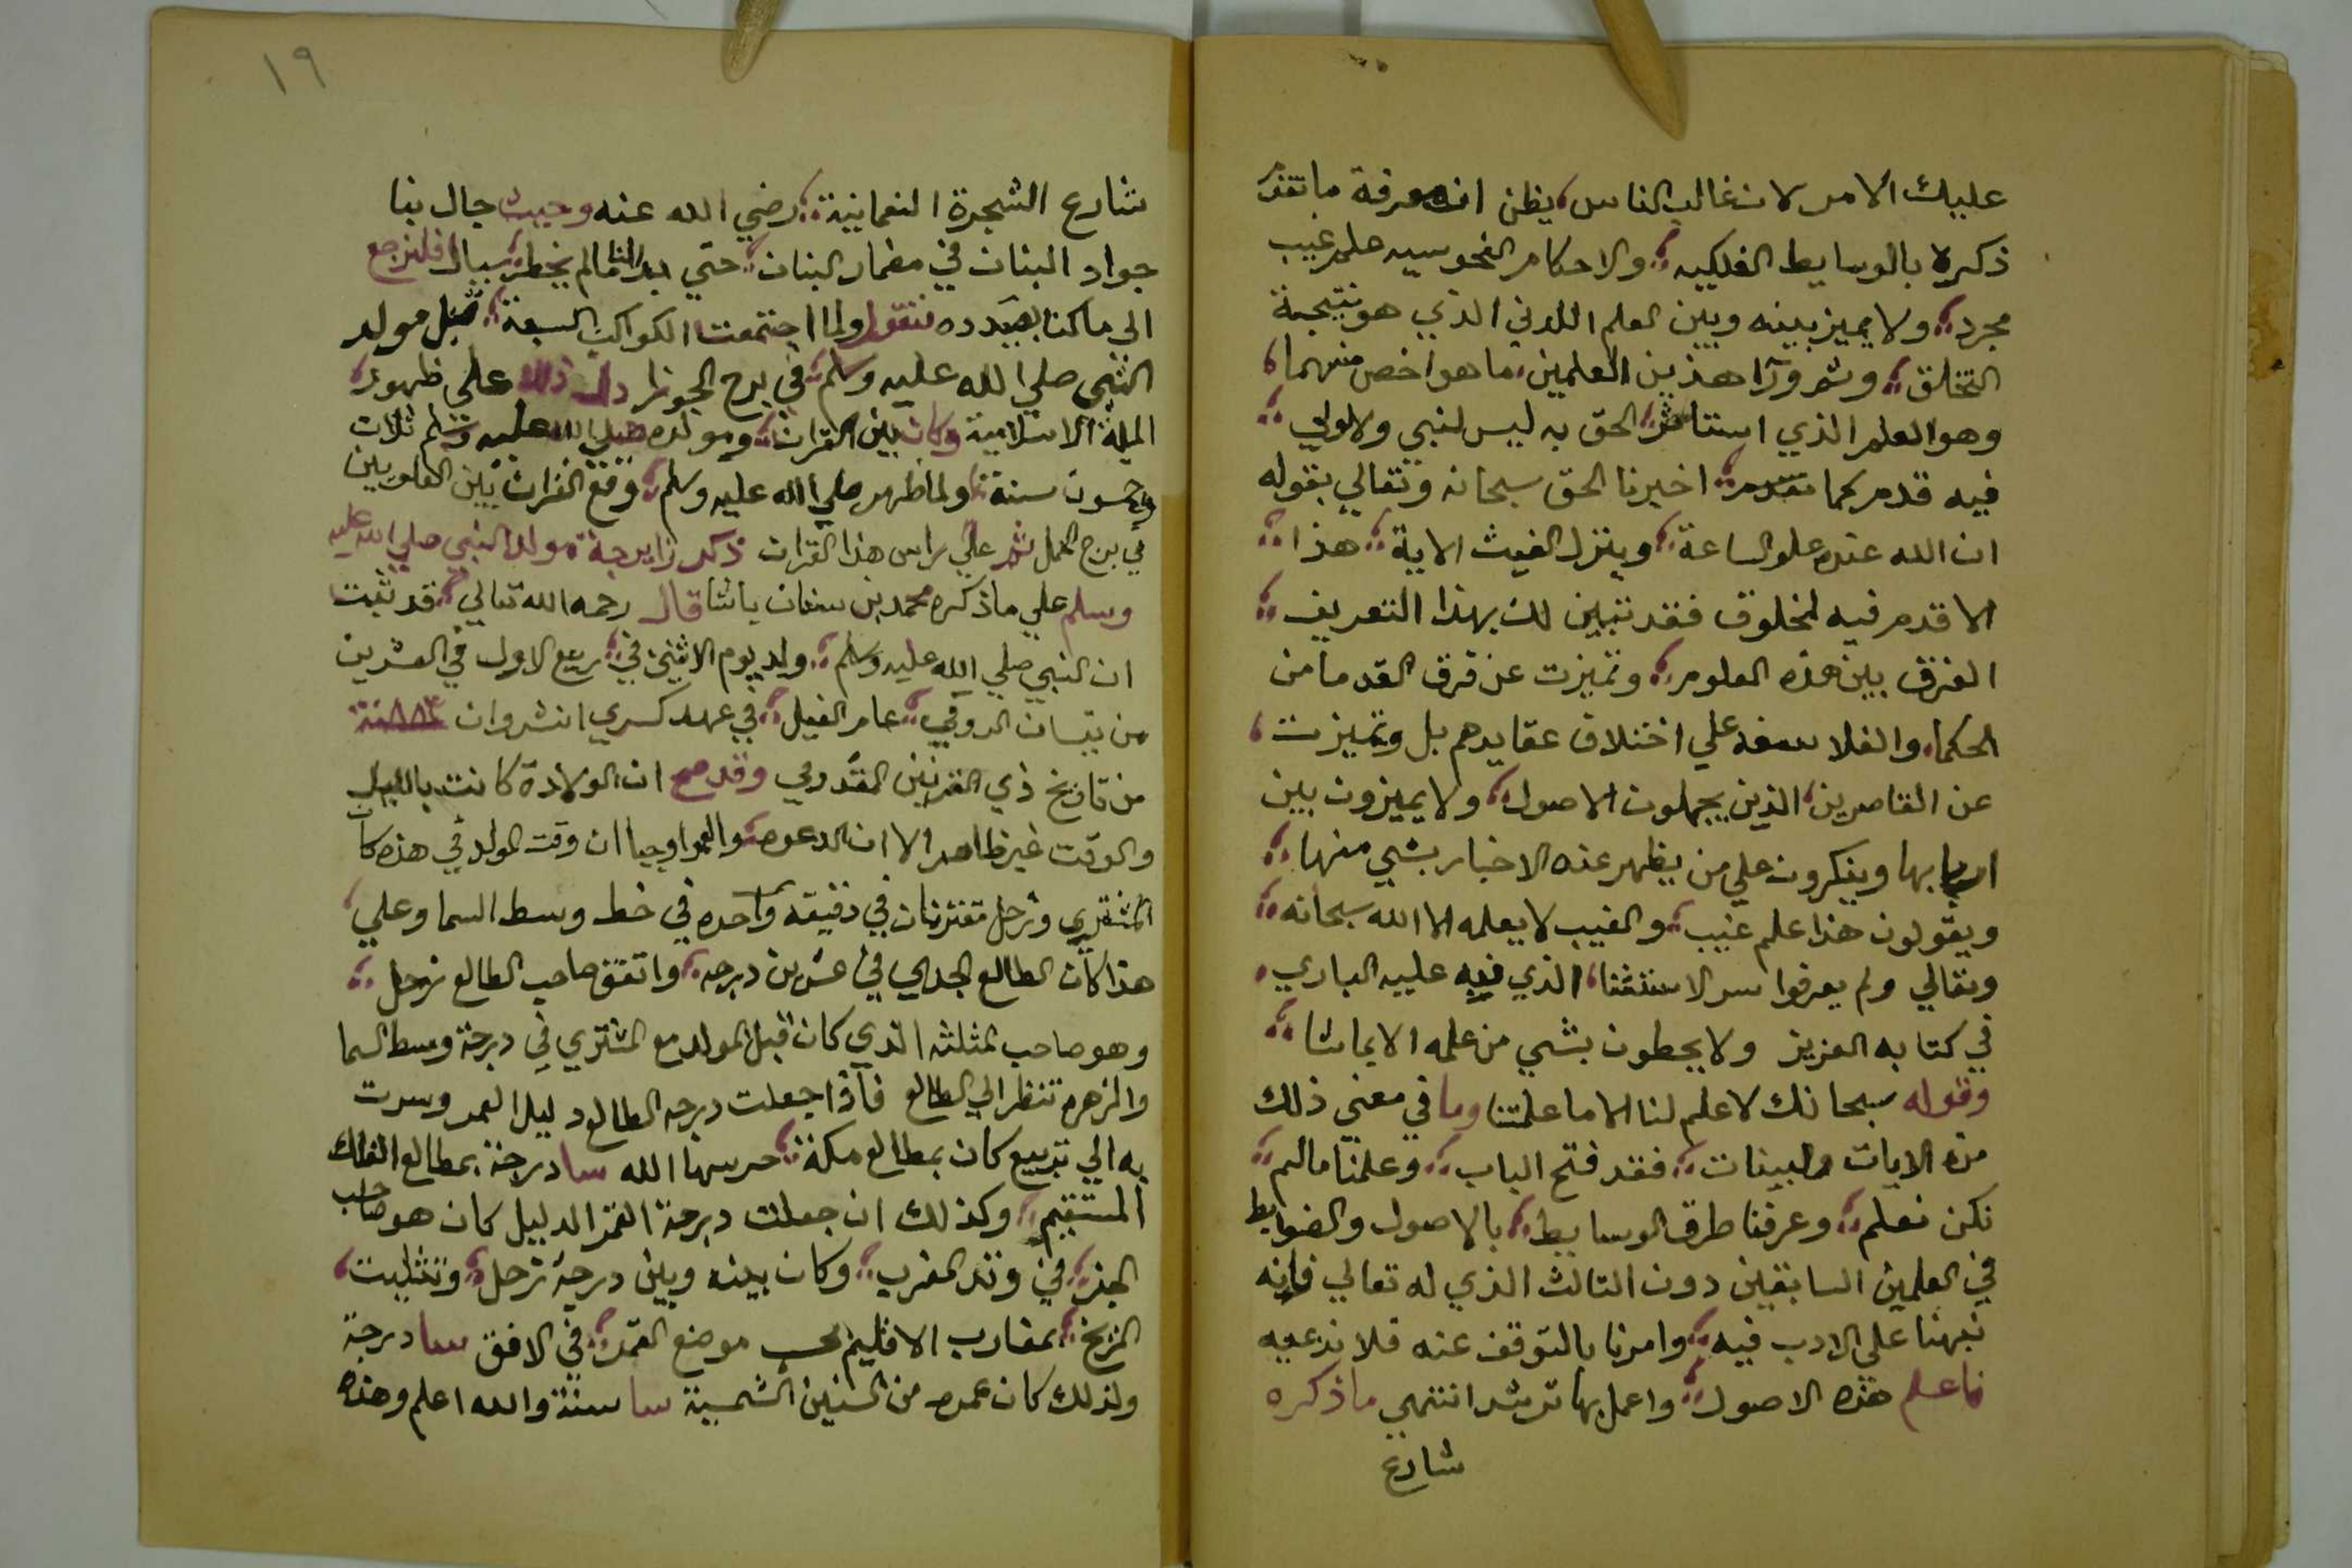 عليك الامر لان غالب الناس يظن ان معرفة ما تقد
ذكره بالوسايط الفلكيه والاحكام النجوسيه علم غيب
مجرد ولا يميز بينه وبين العلم اللدني الذي هو نتيجة
التخلق وثم ورآ هذين العلمين ما هو اخص منهما
وهو العلم الذي استاثر الحق به ليس لنبي ولا ولي
فيه قدم كما تقدم اخبرنا الحق سبحانه وتعالي بقوله
ان الله عنده علم الساعة وينزل الغيث الاية هذا
لا قدم فيه لمخلوق فقد تبين لك بهذا التعريف
الفرق بين هذه العلوم وتميزت عن فرق القدما من
الحكما والفلاسفه علي اختلاف عقايدهم بل وتميزت
عن القاصرين الذين يجهلون الاصول ولا يميزون بين
اربابها وينكرون علي من يظهر عنه الاخبار بشي منها
ويقولون هذا علم غيب والغيب لا يعلمه الا الله سبحانه
وتعالي ولم يعرفوا سر الاستثنا الذي نبه عليه الباري
في كتابه العزيز ولا يحطون بشي من علمه الا بما شا
وقوله سبحانك لا علم لنا الا ما علمتنا وما في معني ذلك
من الايات والبينات فقد فتح الباب وعلمنا مالم
نكن نعلم وعرفنا طرق الوسايط بالاصول والضوابط
في العلمين السابقين دون الثالث الذي له تعالي فإنه
نبهنا علي الادب فيه وامرنا بالتوقف عنه فلا ندعيه
فاعلم هذه الاصول واعمل بها ترشد انتهي ما ذكره
شارع
١٩
شارع الشجرة النعمانية رضي الله عنه وحيث جال بنا
جواد البنان في مضمار البنان حتي بدا لنا مالم يخطر ببال فلنرجع
الي ما كنا بصدده فنقول ولما اجتمعت الكواكب السبعة قبل مولد
النبي صلي الله عليه وسلم في برج الجوزا دل ذلك علي ظهور
الملة الاسلامية وكان بين القران ومولده صلي الله عليه وسلم ثلاث
وخمسون سنة ولما ظهر صلي الله عليه وسلم وقع القران بين العلويين
في برج الحمل ثم علي راس هذا القران ذكر زايرجة مولد النبي صلي الله عليه
وسلم علي ما ذكره محمد بن سنان باشا قال رحمه الله تعالي قد ثبت
ان النبي صلي الله عليه وسلم ولد يوم الاثنين في ربيع الاول في العشرين
من نيسان الرومي عام الفيل في عهد كسري انشروان ٨٨٢ سنة
من تاريخ ذي القرنين المقدومي وقد صح ان الولادة كانت بالليل
والوقت غير ظاهر الا ان الدعوه والعمر اوجبا ان وقت المولد في هذه كان
المشتري وزحل مقترنان في دقيقه واحده في خط وسط السما وعلي
هذا كان الطالع الجدي في عشرين درجه واتفق صاحب الطالع زحل
وهو صاحب المثلثه الذي كان قبل المولد مع المشتري في درجة وسط السما
والزهره تنظر الي الطالع فاذا جعلت درجه الطالع دليل العمر وسرت
به الي تربيع كان بمطالع مكة حرسها الله سا درجة بمطالع الفلك
المستقيم وكذلك ان جعلت درجة القمر الدليل كان هو صاحب
الجز في وتد المغرب وكان بينه وبين درجة زحل وتثليث
المريخ بمغارب الاقليم بحسب موضع القمر في الافق سا درجة
ولذلك كان عمره من السنين الشمسية سا سنة والله اعلم وهذه